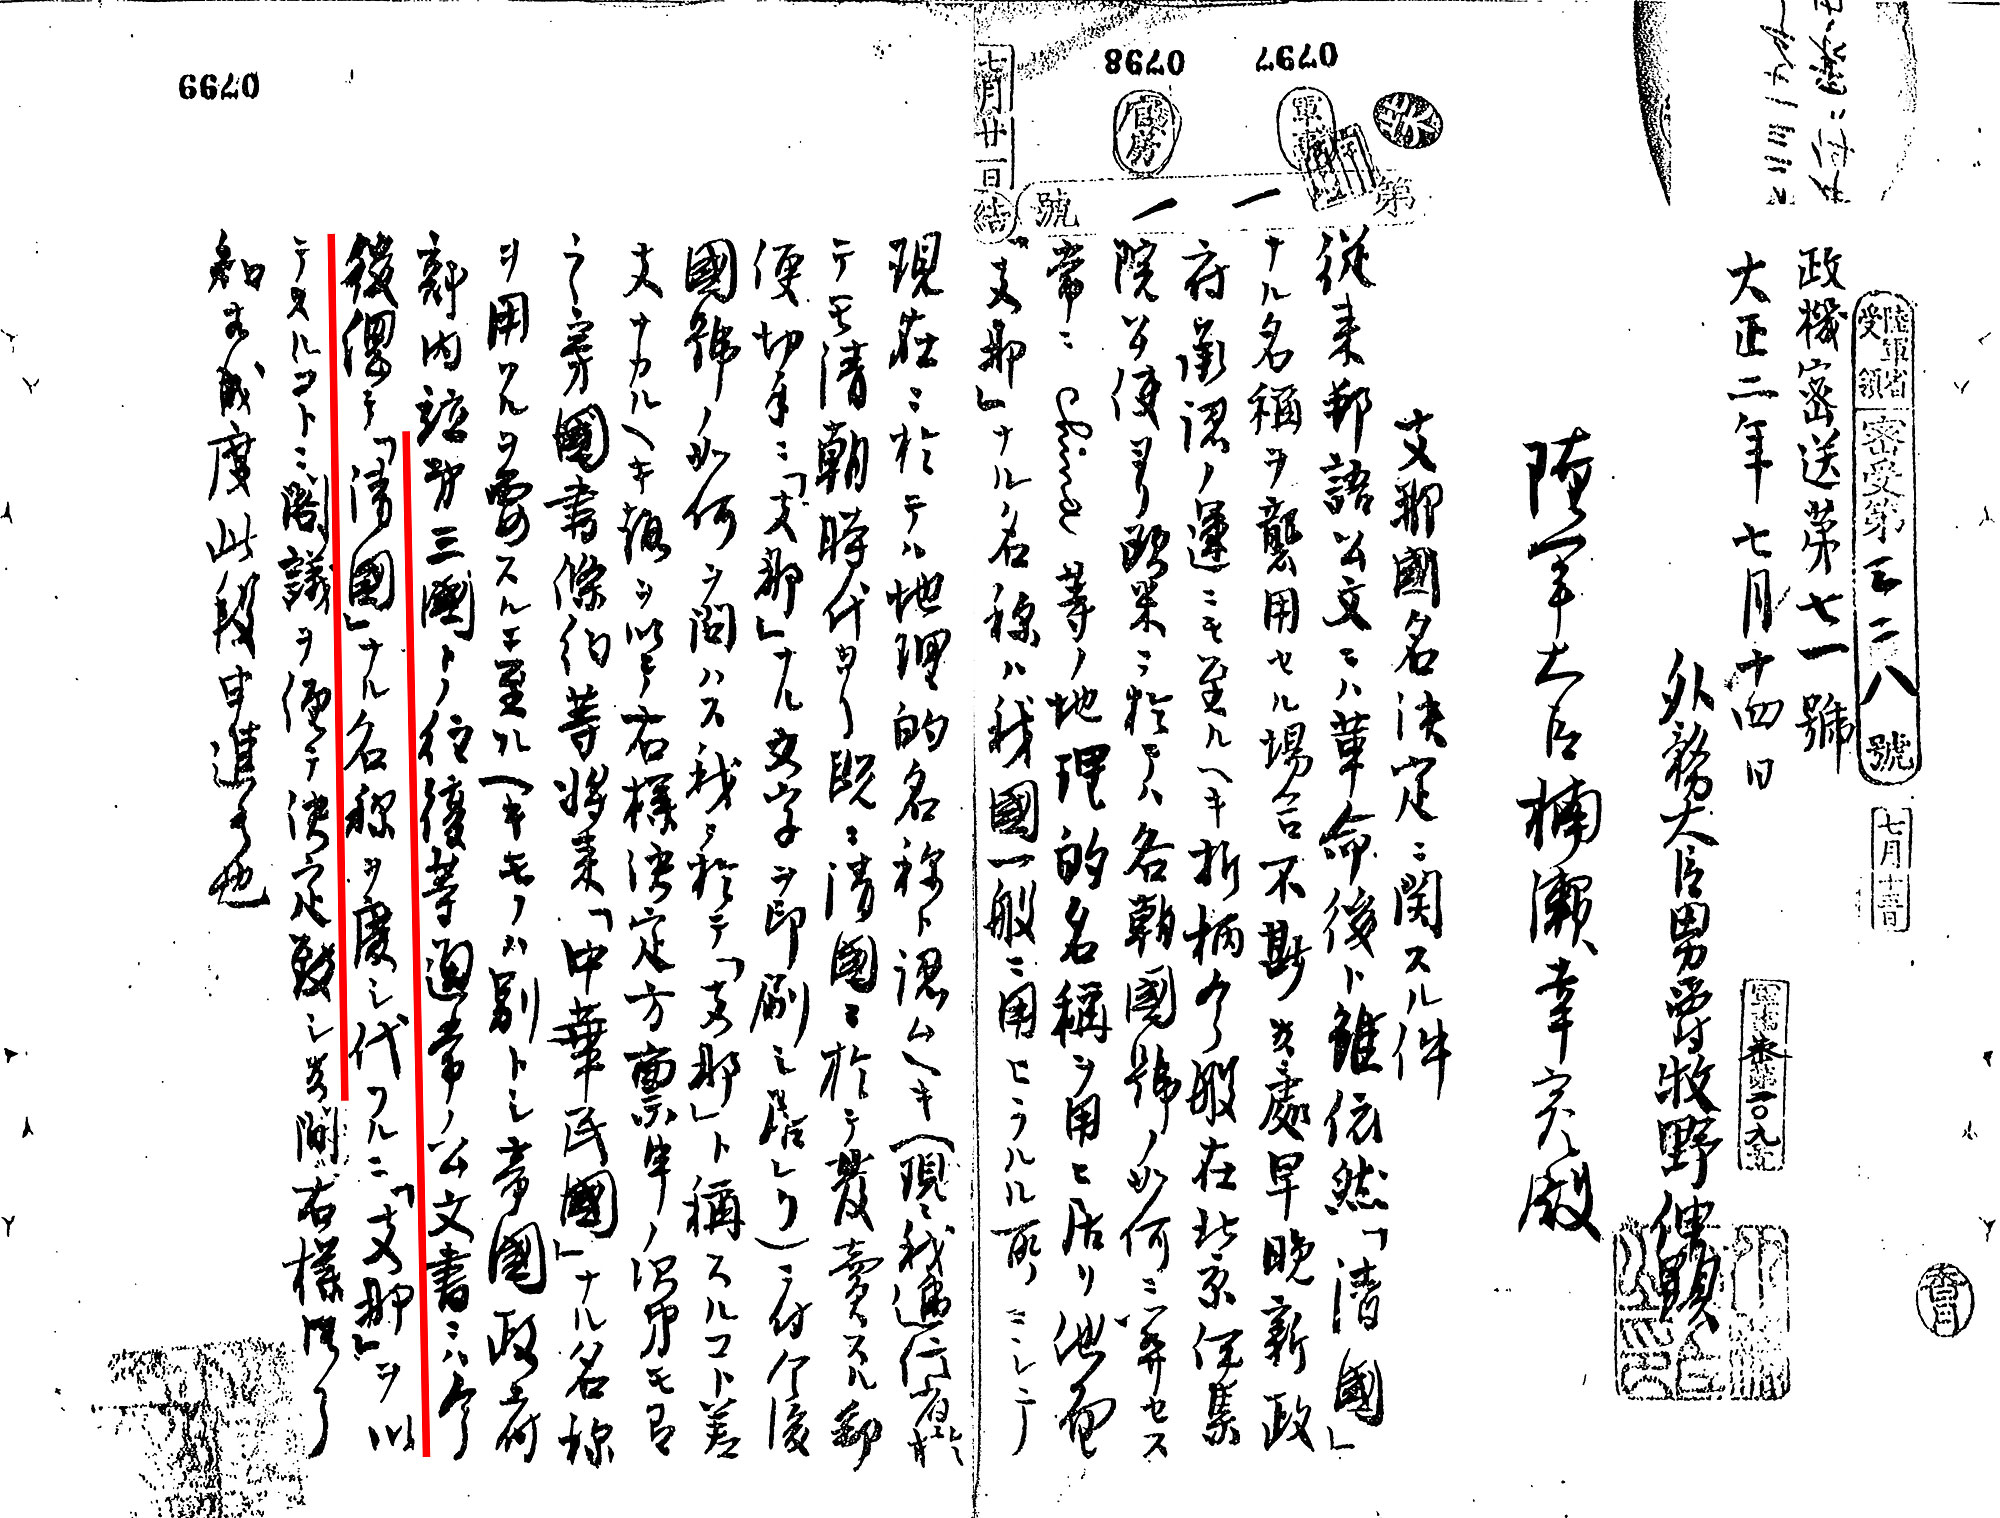 0797
0798
0799
第一一號
官房
七月廿一日結
陸軍省受領
密受第三二八號
七月十五日
政機密送第七一號
大正二年七月十四日
外務大臣男爵牧野伸顯
陸軍大臣楠瀬幸彦殿
支那國名決定ニ関スル件
従来邦語公文ニハ革命後ト雖依然「清國」
ナル名稱ヲ襲用セル場合不尠候處早晩新政
府承認ノ運ニモ至ルヘキ折柄今般在北京伊集
院公使ヨリ欧米ニ於テハ各朝國號ノ如何ニ不拘
常ニ 等ノ地理的名稱ヲ用ヒ居リ他面
「支那」ナル名称ハ我國一般ニ用ヒラルル所ニシテ
現在ニ於テハ地理的名称ト認ムヘキ(現ニ我逓信省ニ於
テモ清朝時代ヨリ既ニ清國ニ於テ發賣スル郵
便切手ニ「支那」ナル文字ヲ印刷シ居レリ)ニ付今後
國號ノ如何ヲ問ハス我ニ於テ「支那」ト稱スルコト差
支ナカルヘキ趣ヲ以テ右様決定方稟申ノ次第モ有
之候處國書條約等将来「中華民國」ナル名称
ヲ用フルヲ要スルニ至ルヘキモノハ別トシ帝國政府
部内並第三國トノ往復等通常ノ公文書ニハ今
後總テ「清國」ナル名称ヲ廢シ代フルニ「支那」ヲ以
テスルコトニ閣議ヲ經テ決定致シ候間右様御了
知相成度此段申進候也